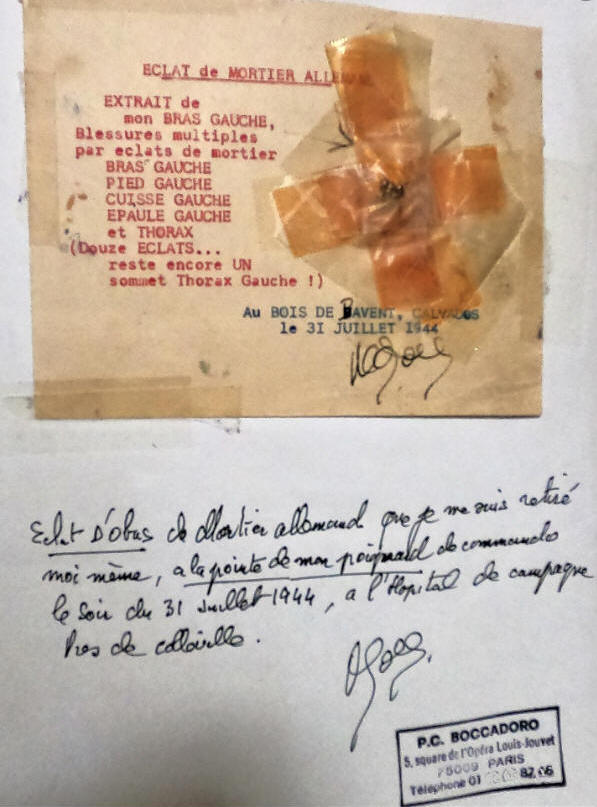 ECLAT de MORTIER ALLEMAND
EXTRAIT de
mon BRAS GAUCHE,
Blessures multiples
par eclats de mortier
BRAS GAUCHE
PIED GAUCHE
CUISSE GAUCHE
EPAULE GAUCHE
et THORAX
(Douze ECLATS...
reste encore UN
sommet Thorax Gauche !)
Au BOIS DE BAVENT, CALVADOS
le 31 JUILLET 1944
Eclat D'obus de Mortier allemand que je me suis retiré
moi même, a la pointe de mon poignard de commando
le soir du 31 Juillet 1944, a l'Hopital de campagne
Pres de colleville.
P.C. BOCCADORO
5, square de l'Opéra Louis-Jouvet
75009 PARIS
Téléphone 01